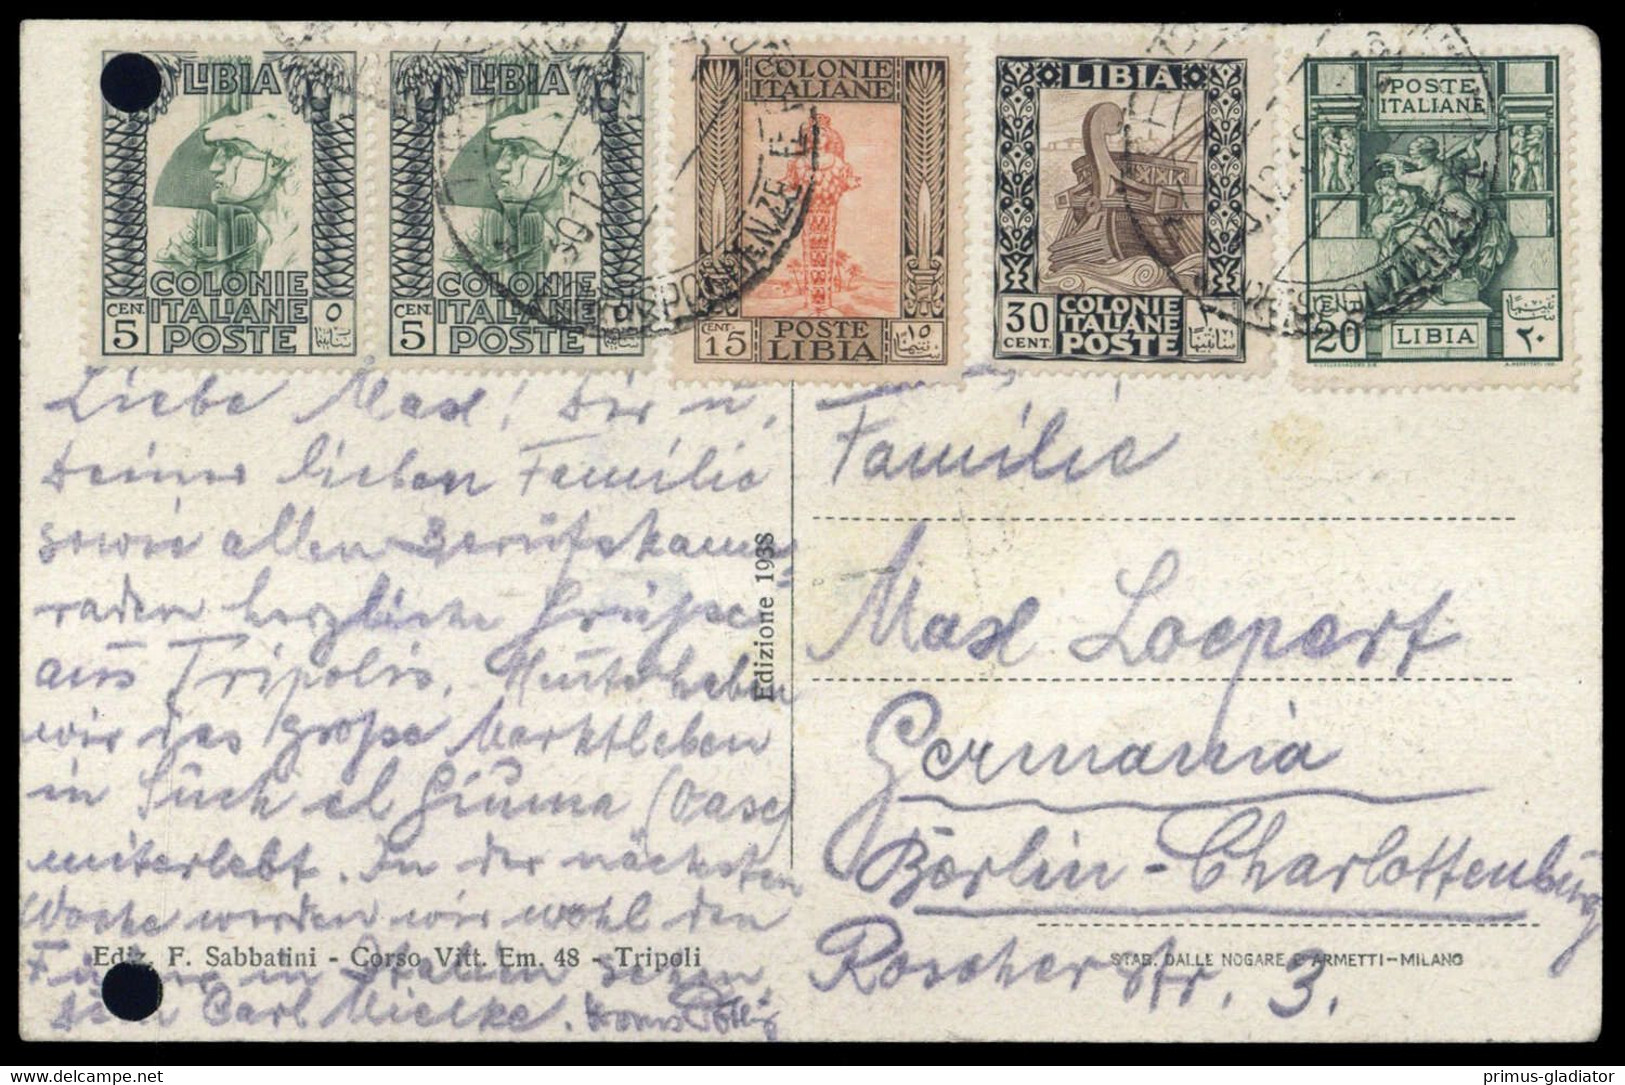 LIBIA
COLONIE
ITALIANE
CEN. 5 POSTE ٥
LIBIA
COLONIE
ITALIANE
CEN. 5 POSTE
COLONIE
ITALIANE
CENT. 15 POSTE LIBIA ١٥
LIBIA
30 CENT. COLONIE ITALIANE POSTE
POSTE
ITALIANE
CENT. 20 LIBIA ٢٠
30.12
CORRISPONDENZE
Liebe Max! Dir u.
Deiner lieben Familie
sowie allen Berufskame
raden herzliche Grüße
aus Tripolis. Heute haben
wir das große Marktleben
in Such el Giuma (Oase)
miterlebt. In der nächsten
Woche werden wir wohl den
in Italien sehen.
Dein Carl Mielke.
Edizione 1938
Ediz. F. Sabbatini - Corso Vitt. Em. 48 - Tripoli
Familie
Max Loepert
Germania
Berlin-Charlottenburg
Roscherstr. 3.
STAB. DALLE NOGARE E ARMETTI-MILANO
www.delcampe.net
primus-gladiator